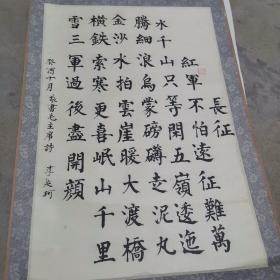 長征
紅軍不怕遠征難萬
水千山只等閑五嶺逶迤
騰細浪烏蒙磅礴走泥丸
金沙水拍雲崖暖大渡橋
橫鉄索寒更喜岷山千里
雪三軍過後盡開顏
癸酉十月 敬書毛主席詩 李延珂